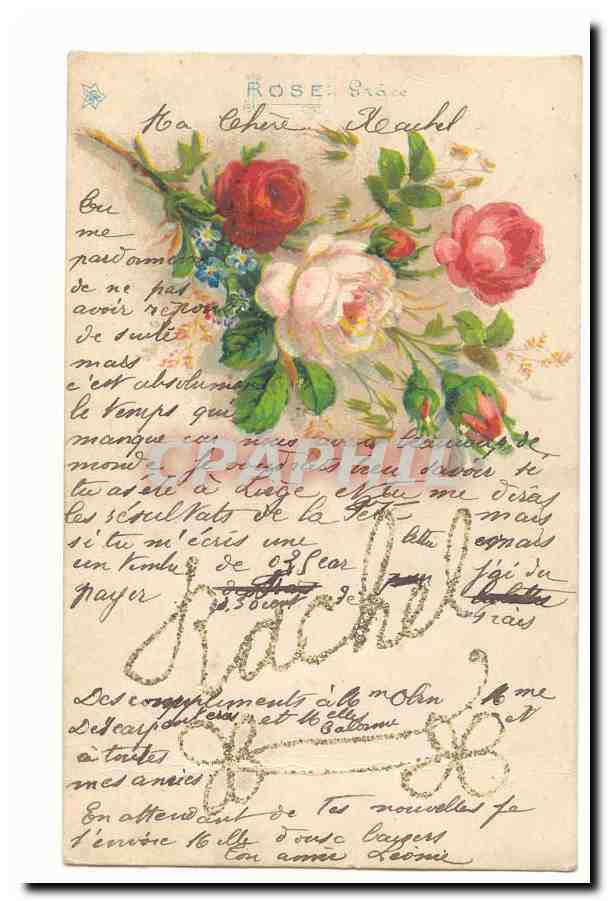 ROSE: Grâce
Ma Chère Rachel
Tu
me
pardonneras
de ne pas
avoir répon
de suite
mais
c'est absolument
le temps qui
manque car nous avons beaucoup de
monde Je voudrais bien savoir si
tu as été à Liège et tu me diras
les résultats de la fête mais
si tu m'écris une lettre
un timbre de 0,25 car j'ai du
payer 0,50 cent de frais
Rachel
Des compliments à Mme
Descarpenteras et Melles et
à toutes
mes amies
En attendant de Tes nouvelles je
t'envoie Mille doux baisers
Ton amie Léonie
CPAPHIL